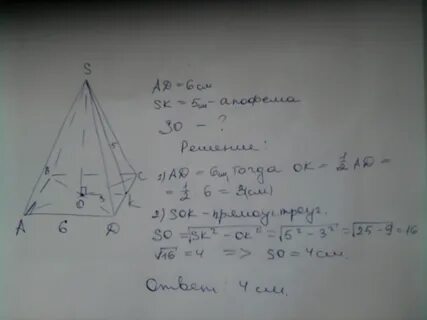 S
AD = 6 см
SK = 5 см - апофема
SO - ?
Решение:
1) AD = 6 см, тогда OK = 1/2 AD =
= 1/2 6 = 3(см)
2) SOK - прямоуг. треуг.
SO = √SK² - OK² = √5² - 3² = √25 - 9 = 16
√16 = 4 => SO = 4 см.
Ответ: 4 см.
5
C
O
3
K
A
6
D